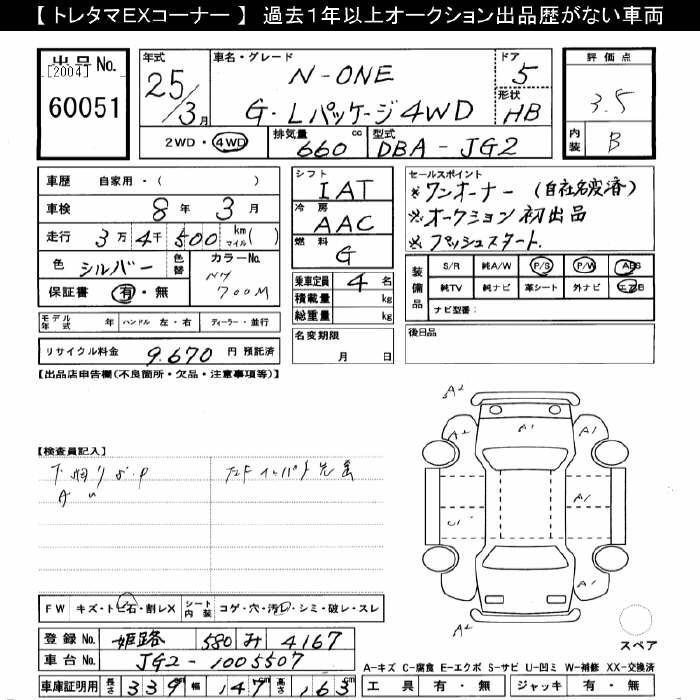 【 トレタマEXコーナー 】 過去1年以上オークション出品歴がない車両
出品No.
[2004]
60051
年式
25/3月
車名・グレード
N-ONE
G・Lパッケージ4WD
ドア
5
形状
HB
2WD・4WD
排気量 660 cc
型式 DBA-JG2
評価点
3.5
内装
B
車歴 自家用・( )
車検 8年 3月
走行 3万 4千 500 km マイル( )
色 シルバー 色替
カラーNo. NH700M
保証書 有・無
モデル年式 年 ハンドル 左・右 ディーラー・並行
リサイクル料金 9,670 円 預託済
シフト
IAT
冷房
AAC
燃料
G
乗車定員 4 名
積載量 kg
総重量 kg
名変期限
月 日
セールスポイント
※ワンオーナー(自社名変済)
※オークション初出品
※プッシュスタート.
装備品
S/R 純A/W P/S P/W ABS
純TV 純ナビ 革シート 外ナビ エアB
ナビ型番:
後日品
【出品店申告欄(不良箇所・欠品・注意事項等)】
【検査員記入】
A2
A2
A1
A1
A1
U1
A1
A2
FW キズ・トビ石・割レX シート内装 コゲ・穴・汚レ・シミ・破レ・スレ
スペア
登録No. 姫路 580 み 4167
車台No. JG2-1005507
車庫証明用 長さ 339 cm 幅 147 cm 高さ 163 cm
A-キズ C-腐食 E-エクボ S-サビ U-凹ミ W-補修 XX-交換済
工具 有・無 ジャッキ 有・無